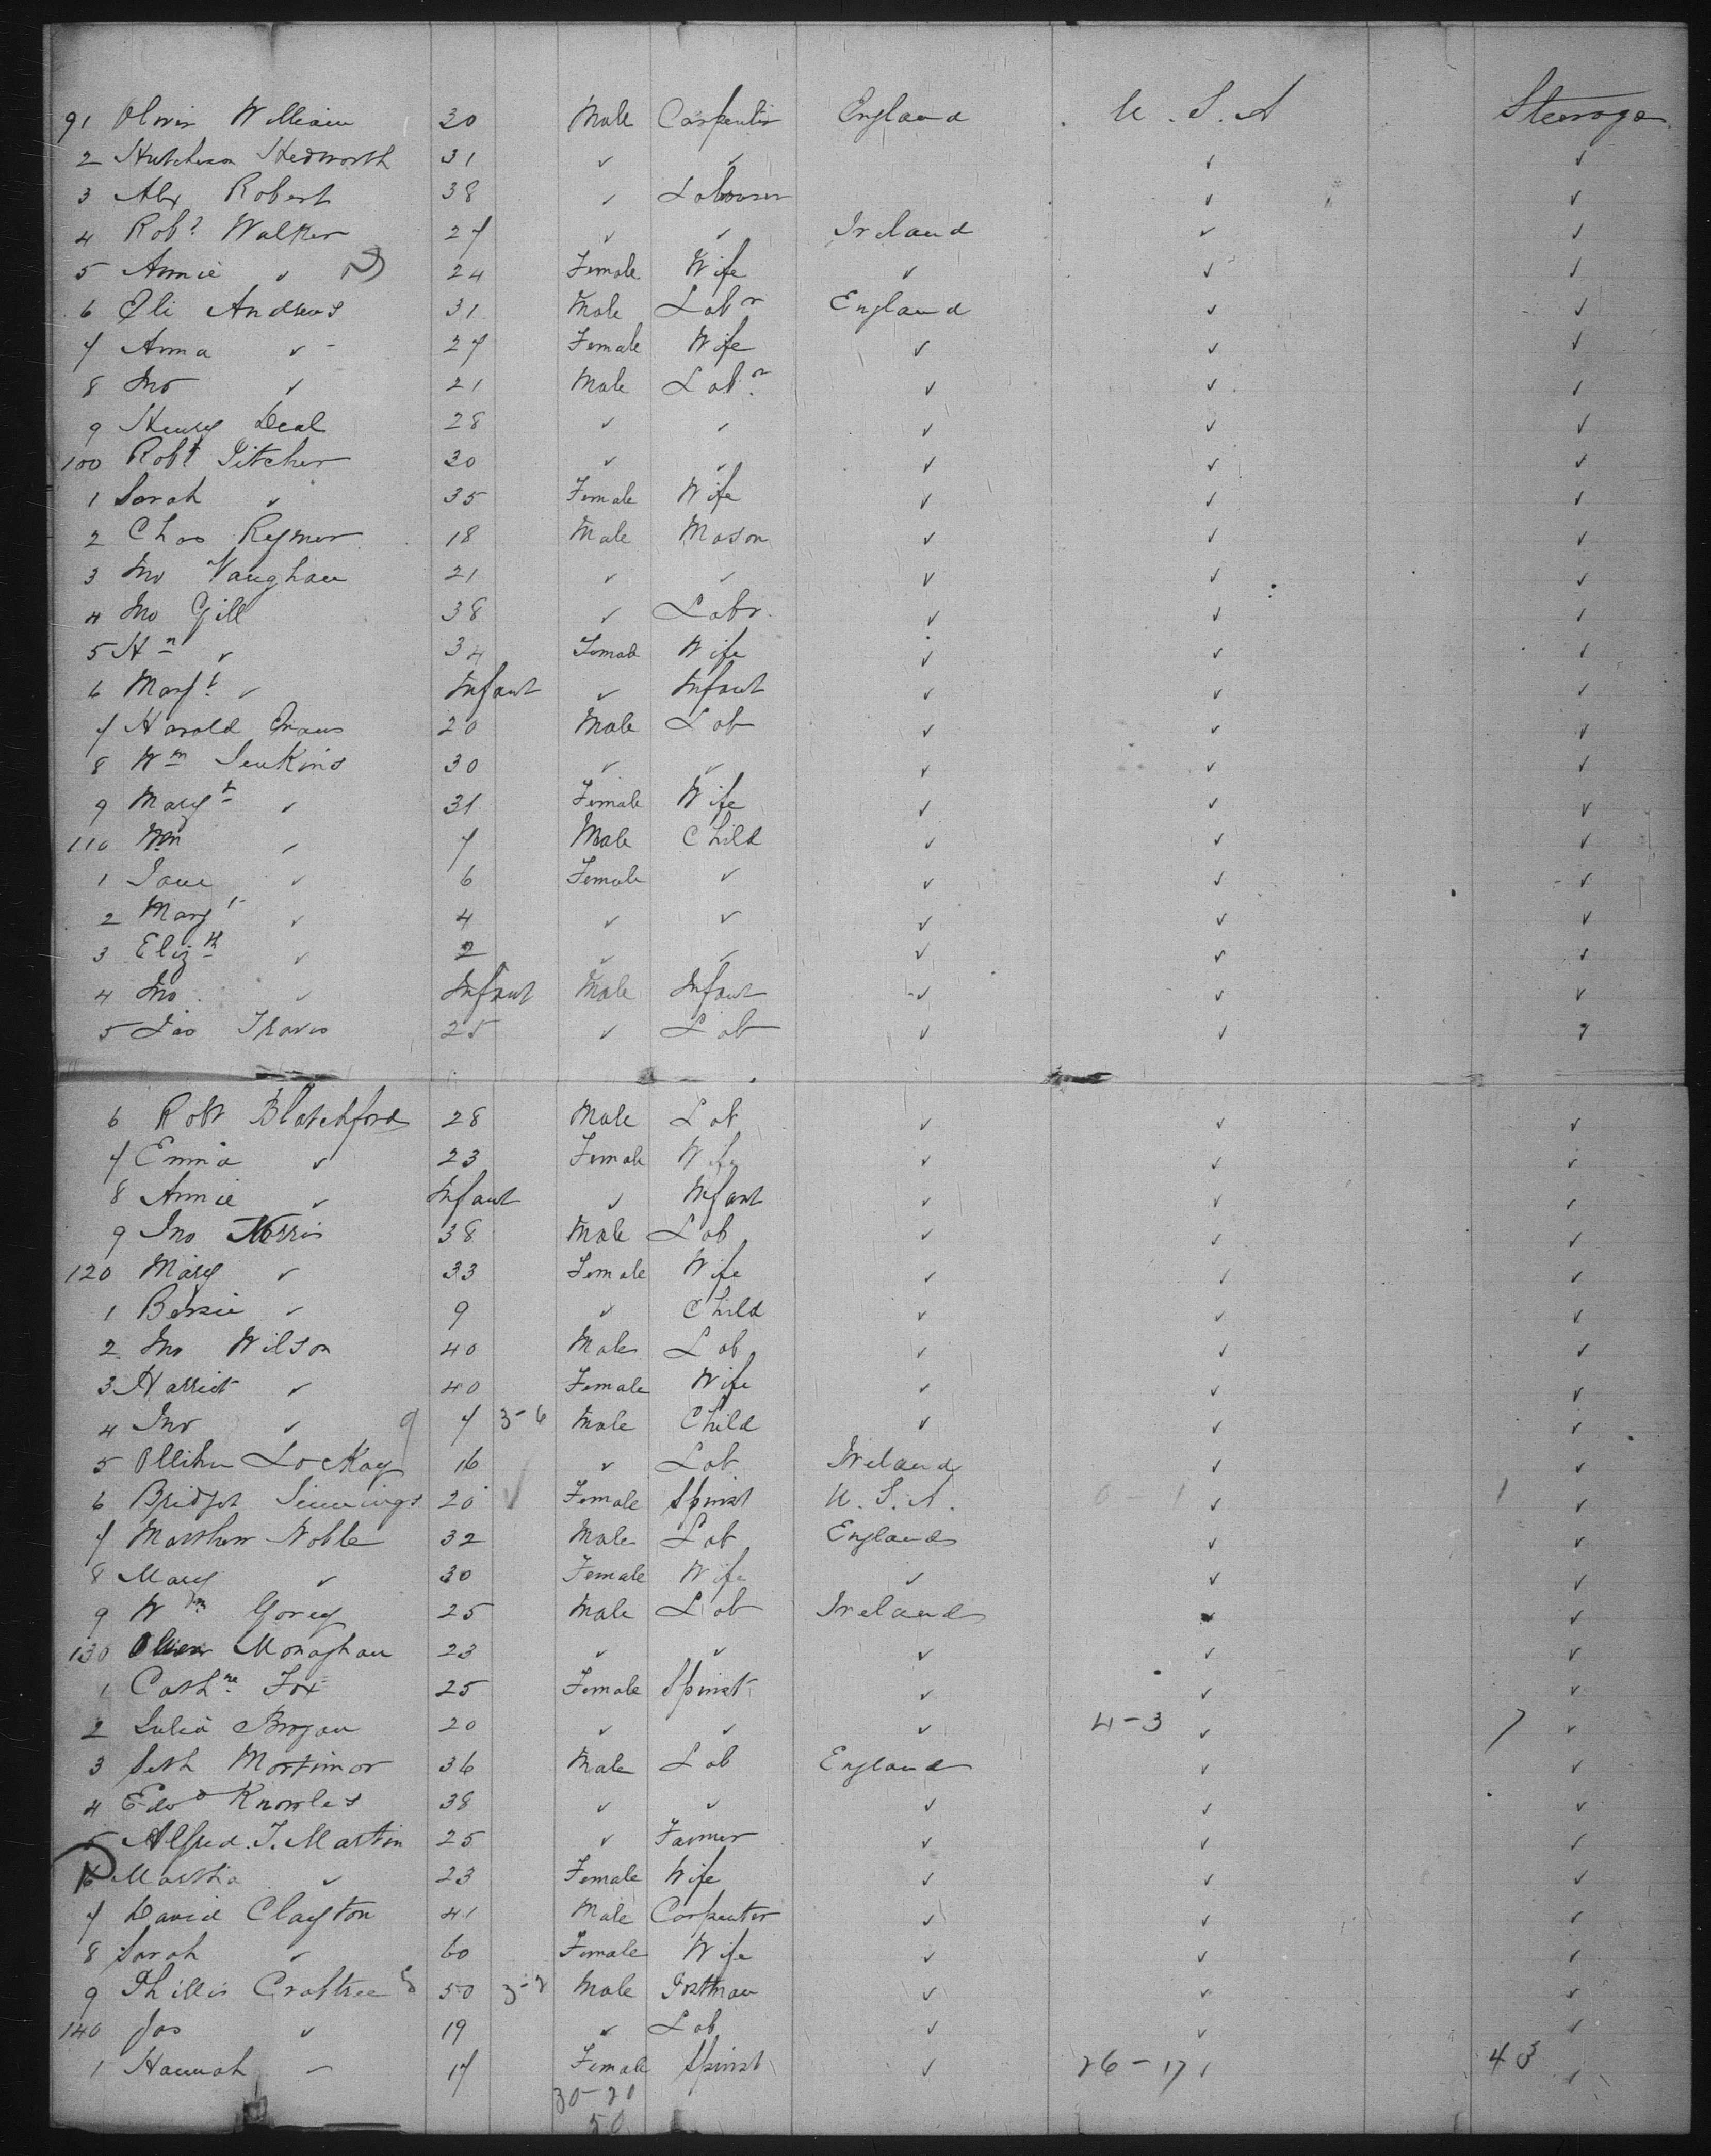 91 Oliver William 30 Male Carpenter England U.S.A Steerage
2 Hutcheson Hedworth 31 ✓ ✓ ✓ ✓
3 Alex Robert 38 ✓ Labourer ✓ ✓
4 Robt Walker 27 ✓ ✓ Ireland ✓ ✓
5 Annie ✓ 24 Female Wife ✓ ✓ ✓
6 Eli Andrews 31 Male Labr England ✓ ✓
7 Anna ✓ 27 Female Wife ✓ ✓ ✓
8 Jno ✓ 21 Male Labr ✓ ✓ ✓
9 Henry Deal 28 ✓ ✓ ✓ ✓ ✓
100 Robt Pitcher 30 ✓ ✓ ✓ ✓ ✓
1 Sarah ✓ 35 Female Wife ✓ ✓ ✓
2 Chas Rymer 18 Male Mason ✓ ✓ ✓
3 Jno Vaughan 21 ✓ ✓ ✓ ✓ ✓
4 Jno Gill 38 ✓ Labr ✓ ✓ ✓
5 Hn ✓ 34 Female Wife ✓ ✓ ✓
6 Margt ✓ Infant ✓ Infant ✓ ✓ ✓
7 Harold 20 Male Lab ✓ ✓ ✓
8 Wm Jenkins 30 ✓ ✓ ✓ ✓ ✓
9 Margt ✓ 31 Female Wife ✓ ✓ ✓
110 Wm ✓ 7 Male Child ✓ ✓ ✓
1 Jane ✓ 6 Female ✓ ✓ ✓ ✓
2 Margt ✓ 4 ✓ ✓ ✓ ✓ ✓
3 Elizth ✓ 2 ✓ ✓ ✓ ✓ ✓
4 Jno ✓ Infant Male Infant ✓ ✓ ✓
5 Jas Travis 25 ✓ Lab ✓ ✓ ✓
6 Robt Blatchford 28 Male Lab ✓ ✓ ✓
7 Emma ✓ 23 Female Wife ✓ ✓ ✓
8 Annie ✓ Infant ✓ Infant ✓ ✓ ✓
9 Jno Norris 38 Male Lab ✓ ✓ ✓
120 Mary ✓ 33 Female Wife ✓ ✓ ✓
1 Bessie ✓ 9 ✓ Child ✓ ✓ ✓
2 Jno Wilson 40 Male Lab ✓ ✓ ✓
3 Harriet ✓ 40 Female Wife ✓ ✓ ✓
4 Jno ✓ 9 7 35-6 Male Child ✓ ✓ ✓
5 Lockay 16 ✓ Lab Ireland ✓ ✓
6 Bridget 20 ✓ Female Spinst U.S.A. 0 1 ✓ 1 ✓
7 Matthew Noble 32 Male Lab England ✓ ✓
8 Mary ✓ 30 Female Wife ✓ ✓ ✓
9 Wm Gorey 25 Male Lab Ireland ✓ ✓
130 Owen Monaghan 23 ✓ ✓ ✓ ✓ ✓
1 Cathne Fox 25 Female Spinst ✓ ✓ ✓
2 Julia Brogan 20 ✓ ✓ ✓ 4-3 ✓ 7 ✓
3 Seth Mortimor 36 Male Lab England ✓ ✓
4 Edwd Knowles 38 ✓ ✓ ✓ ✓ ✓
5 Alfred. J. Martin 25 ✓ Farmer ✓ ✓ ✓
6 Martha ✓ 23 Female Wife ✓ ✓ ✓
7 David Clayton 41 Male Carpenter ✓ ✓ ✓
8 Sarah ✓ 60 Female Wife ✓ ✓ ✓
9 Phillis Crabtree 50 Male Postman ✓ ✓ ✓
140 Jos ✓ 19 ✓ Lab ✓ ✓ ✓
1 Hannah ✓ 17 Female Spinst ✓ 26-17 ✓ 43 ✓
30-20
50